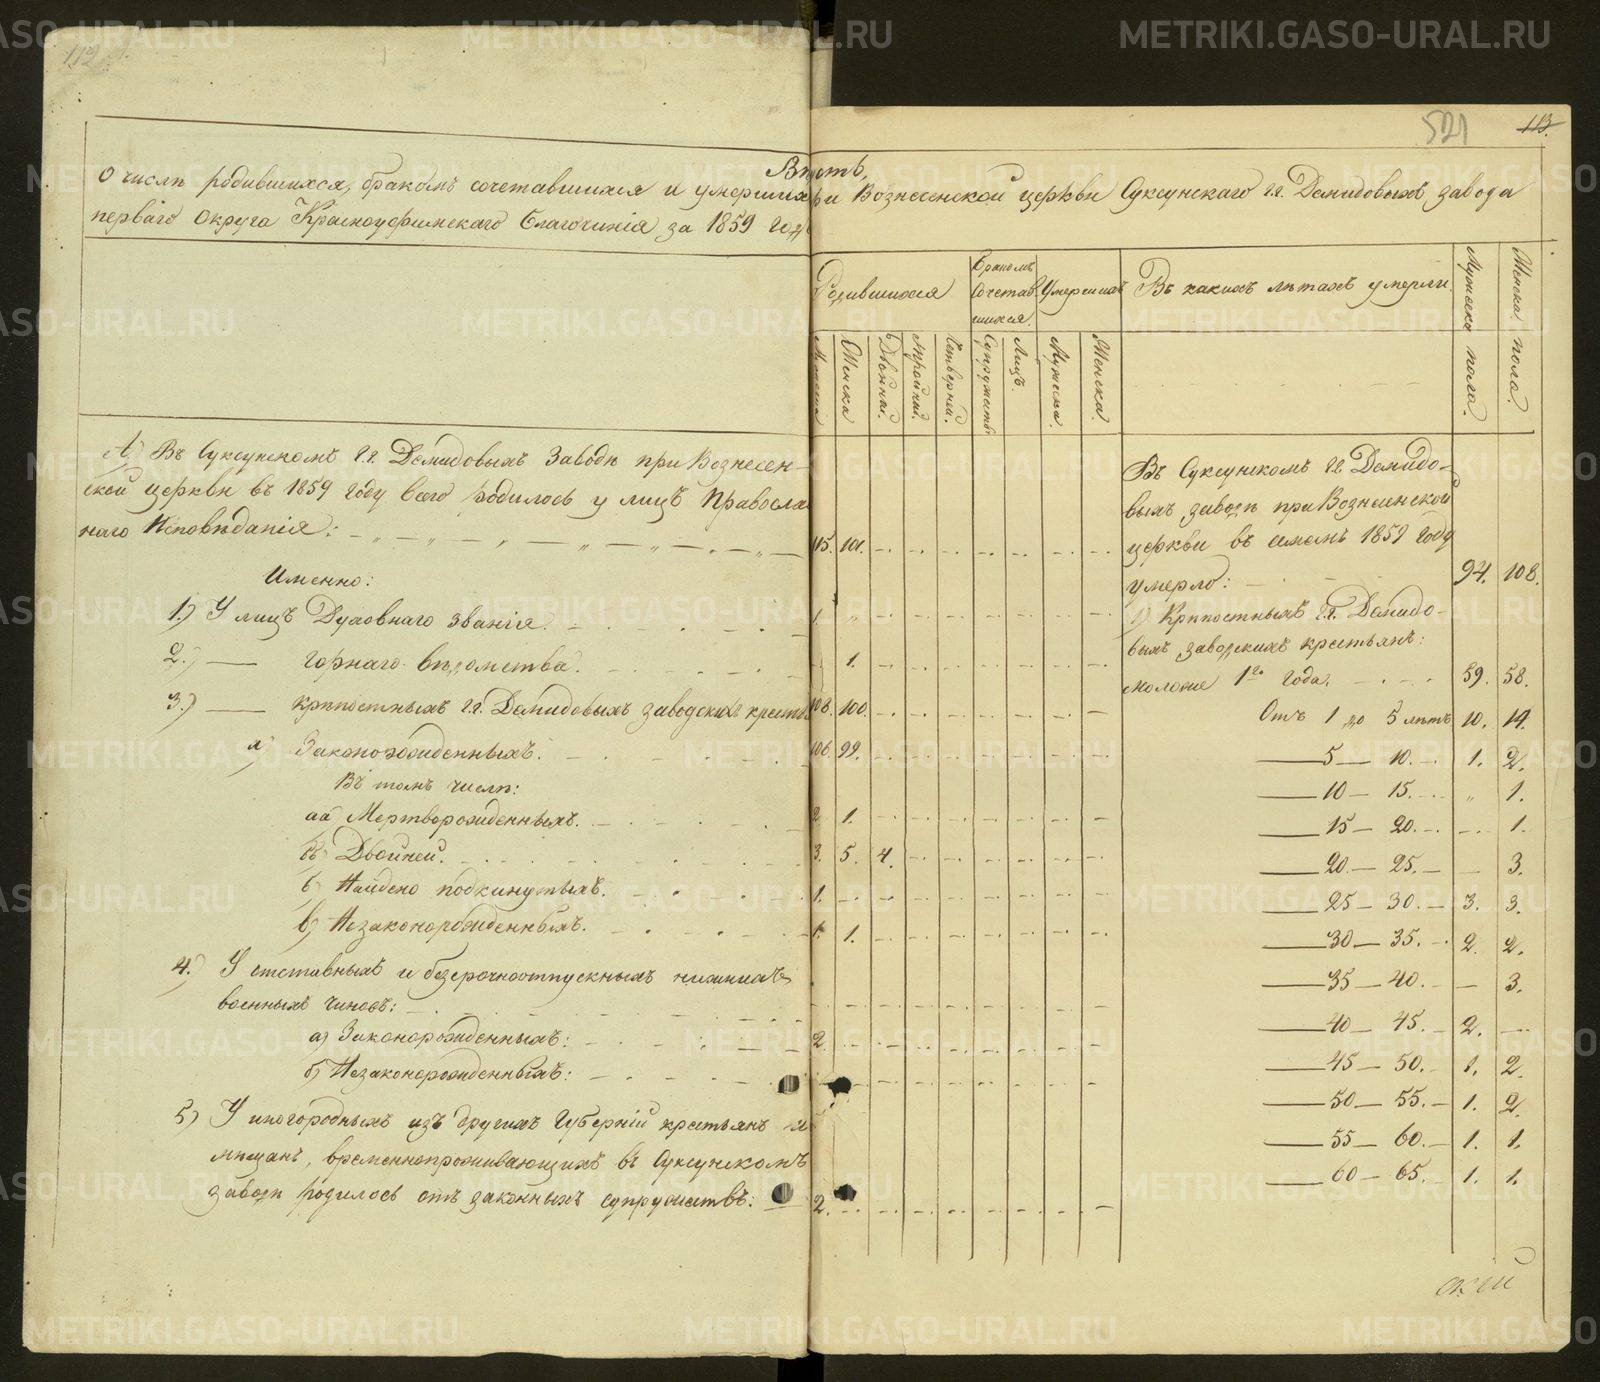 112
521
113.
Вѣсть,
О числѣ родившихся, бракомъ сочетавшихся и умерших при Вознесенской церкви Суксунскаго г.г. Демидовыхъ завода
перваго округа Красноуфимскаго Благочинія за 1859 год
Родившихся
Бракомъ сочетавшихся.
Умерших
Въ какихъ лѣтахъ умерли.
Мужска пола.
Женска пола.
Женска
Двойни.
Тройни.
Четверней.
Супружествъ.
Лицъ.
Мужска.
Женска.
А) Въ Суксунскомъ г.г. Демидовыхъ Заводѣ при Вознесен-
ской церкви въ 1859 году всего родилось у лицъ Православ
наго Исповѣданія: 115. 101.
Именно:
1.) У лицъ Духовнаго званія. 1.
2.) — Горнаго вѣдомства. 1.
3.) — крѣпостныхъ г.г. Демидовыхъ заводскихъ кресть 108. 100.
а) Законорожденныхъ. 106. 99.
Въ томъ числѣ:
аа) Мертворожденныхъ. 2. 1.
бб) Двойней. 3. 5. 4.
б) Найдено подкинутыхъ. 1.
в) Незаконорожденныхъ. 1. 1.
4.) У отставныхъ и безсрочноотпускныхъ нижнихъ
военныхъ чиновъ:
а) Законорожденныхъ: 2.
б) Незаконорожденныхъ:
5) У иногородныхъ изъ другихъ Губерній крестьянъ и
мѣщанъ, временнопроживающихъ въ Суксунскомъ
заводѣ родилось отъ законныхъ супружествъ: 2.
Въ Суксунскомъ г.г. Демидо-
выхъ заводѣ при Вознесенской
церкви въ семъ 1859 году
умерло: 94. 108.
1) Крѣпостныхъ г.г. Демидо-
выхъ заводскихъ крестьянъ:
моложе 1го года. 59. 58.
Отъ 1 до 5 лѣтъ 10. 19.
— 5 — 10. 1. 2.
— 10 — 15. „ 1.
— 15 — 20. — 1.
— 20 — 25. — 3.
— 25 — 30. 3. 3.
— 30 — 35. 2. 2.
— 35 — 40. — 3.
— 40 — 45. 2. —
— 45 — 50. 1. 2.
— 50 — 55. 1. 2.
— 55 — 60. 1. 1.
— 60 — 65. 1. 1.
METRIKI.GASO-URAL.RU